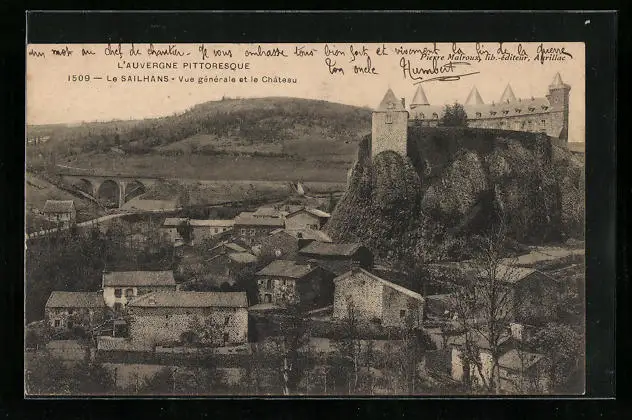 un mot au chef de chantier. Je vous embrasse tous bien fort et vivement la fin de la guerre
Ton oncle Humbert
L'AUVERGNE PITTORESQUE
Pierre Malroux, lib.-éditeur, Aurillac
1509 — Le SAILHANS - Vue générale et le Château